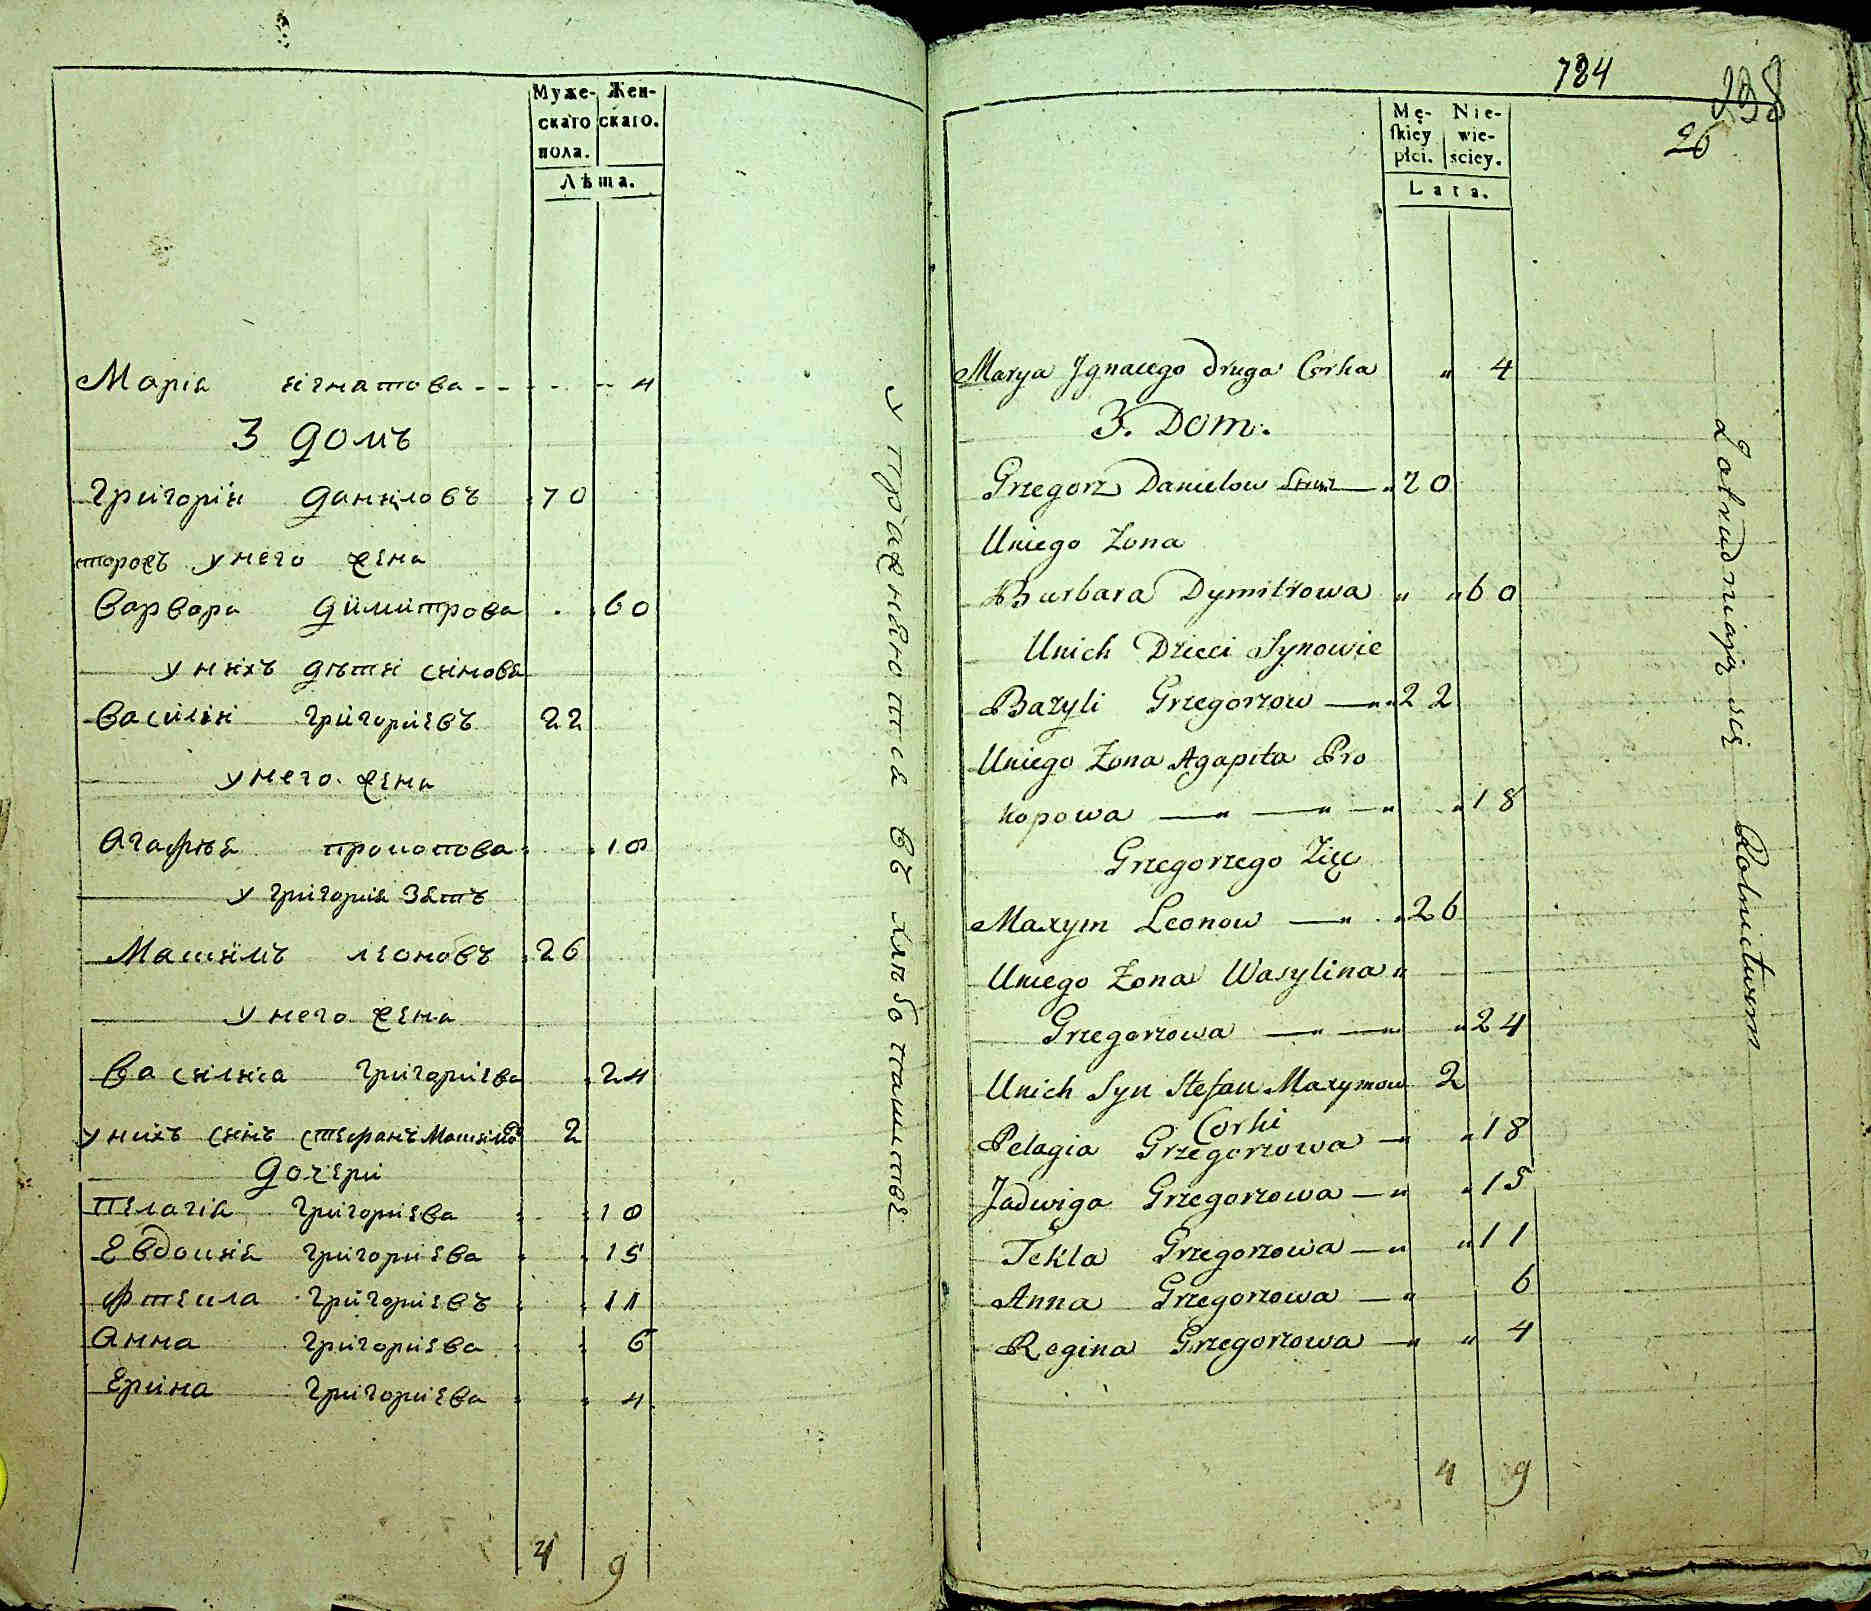 Муже- Жен-
скаго скаго.
пола.
Лѣта.
Марія Игнатова - - - - - - 4
3 домъ
Григорій Даниловъ 70
у него жена
Варвара Димитрова 60
у нихъ дѣти синовя
Василій Григориевъ 22
у него жена
Агафѣя Прокопова 18
у Григорія Зять
Максімъ Леоновъ 26
у него жена
Василиса Григориева 24
у нихъ синъ Стефанъ Максімовъ 2
Дочери
Пелагія Григориева 18
Евдокия Григориева 15
Фтекла Григориевъ 11
Анна Григориева 6
Ерина Григориева 4
4 9
упражняются въ хлѣбопашитве
784
26
Mę- Nie-
skiey wie-
płci. sciey.
Lata.
Marya Jgnacego druga Corka " 4
3. Dom.
Grzegorz Danielow — " 70
Uniego Zona
Barbara Dymitrowa " " 60
Unich Dzieci Synowie
Bazyli Grzegorzow — " " 22
Uniego Zona Agapita Pro
kopowa — " — " — " " 18
Grzegorzego Zięc
Maxym Leonow — " " 26
Uniego Zona Wasylina "
Grzegorzowa — " — " " 24
Unich Syn Stefan Maxymow 2
Corki
Pelagia Grzegorzowa — " " 18
Jadwiga Grzegorzowa — " " 15
Tekla Grzegorzowa — " " 11
Anna Grzegorzowa — " 6
Regina Grzegorzowa — " " 4
4 9
Zatrudniają się Rolnictwem